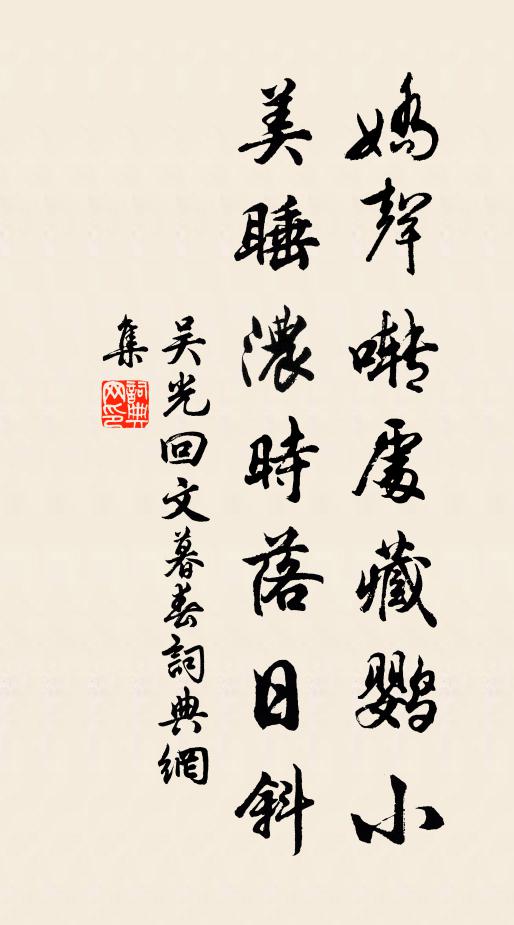 嬌聲囀處藏鸚小
美睡濃時落日斜
吴光回文暮春詞典網
集
詞典
网印